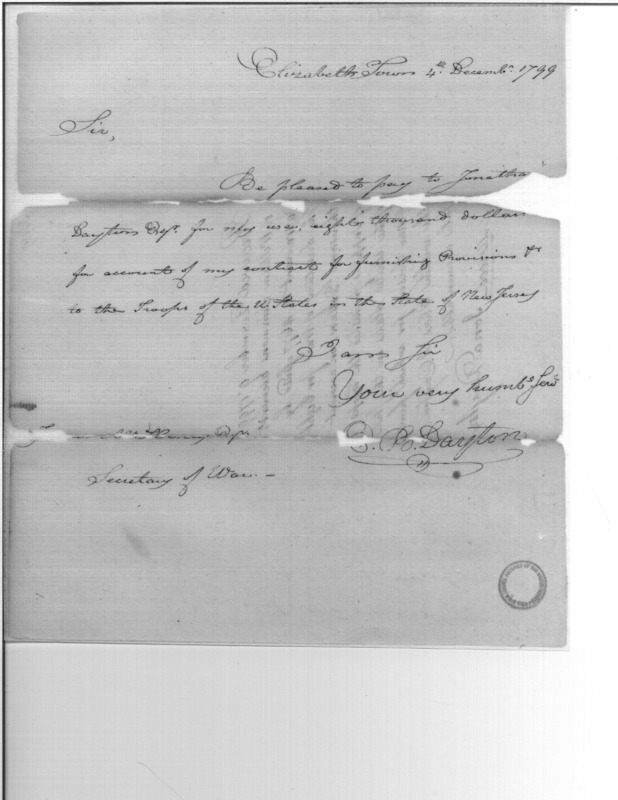 Elizabeth Town 4th Decembr. 1799
Sir,
Be pleased to pay to Jonatha
Dayton Esqr. for my use, eight thousand dollars
for account of my contract for furnishing Provisions &c
to the Troops of the U. States in the State of New Jersey
I am Sir
Your very humbe. Serv
Henry Esqr.
Dayton
Secretary of War. —